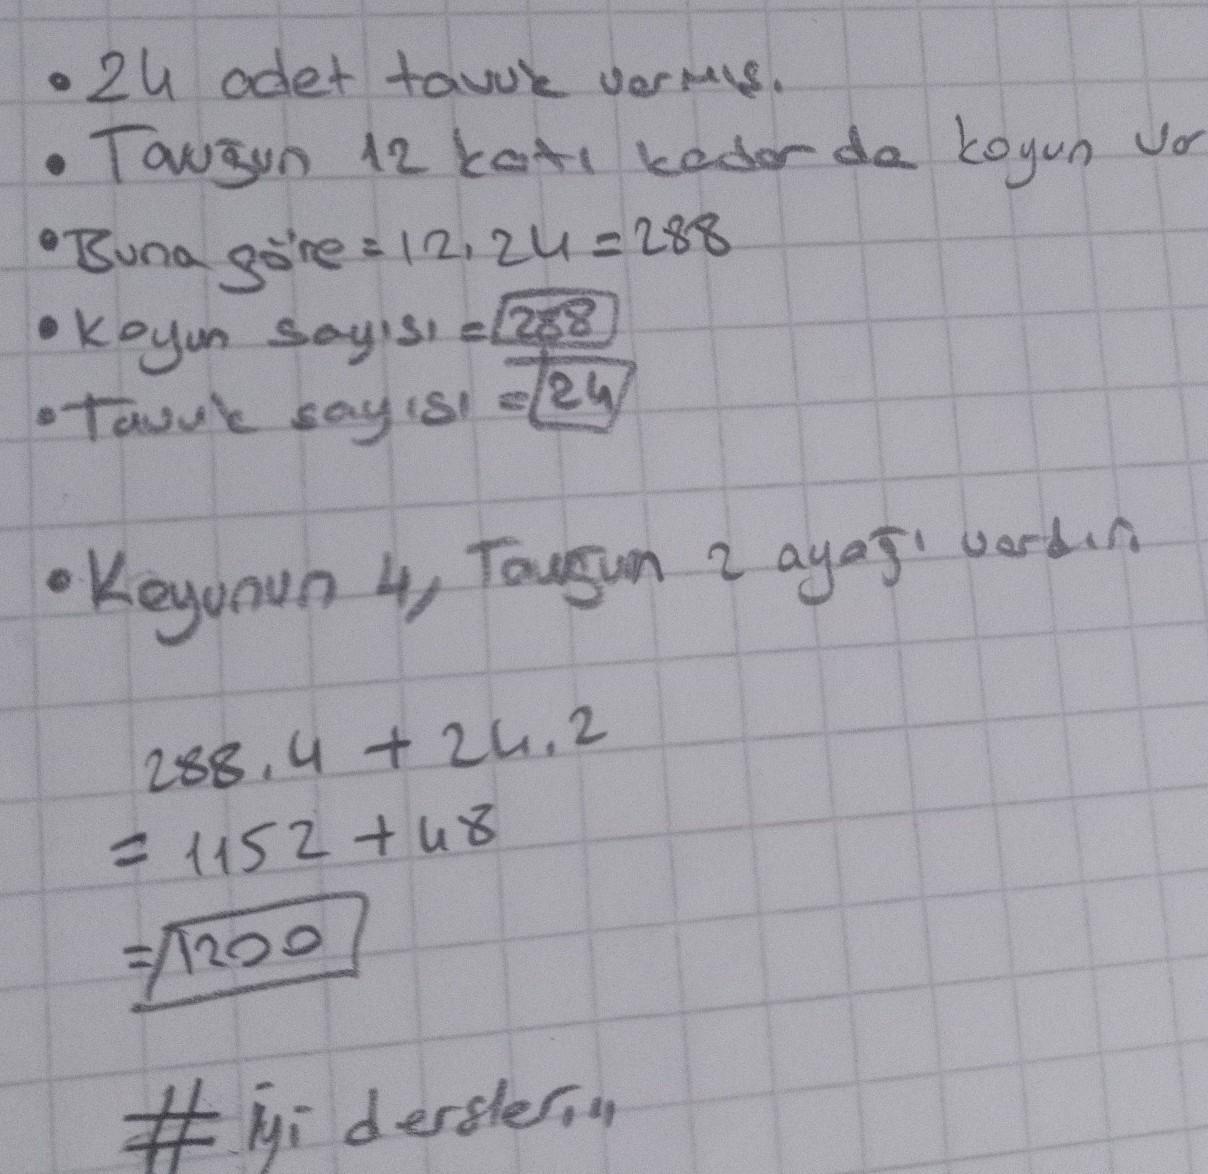 • 24 adet tavuk varmış.
• Tavuğun 12 katı kadar da koyun var
• Buna göre = 12.24 = 288
• Koyun sayısı = 288
• Tavuk sayısı = 24
• Koyunun 4, Tavuğun 2 ayağı vardır.
288.4 + 24.2
= 1152 + 48
= 1200
# İyi dersler..,,